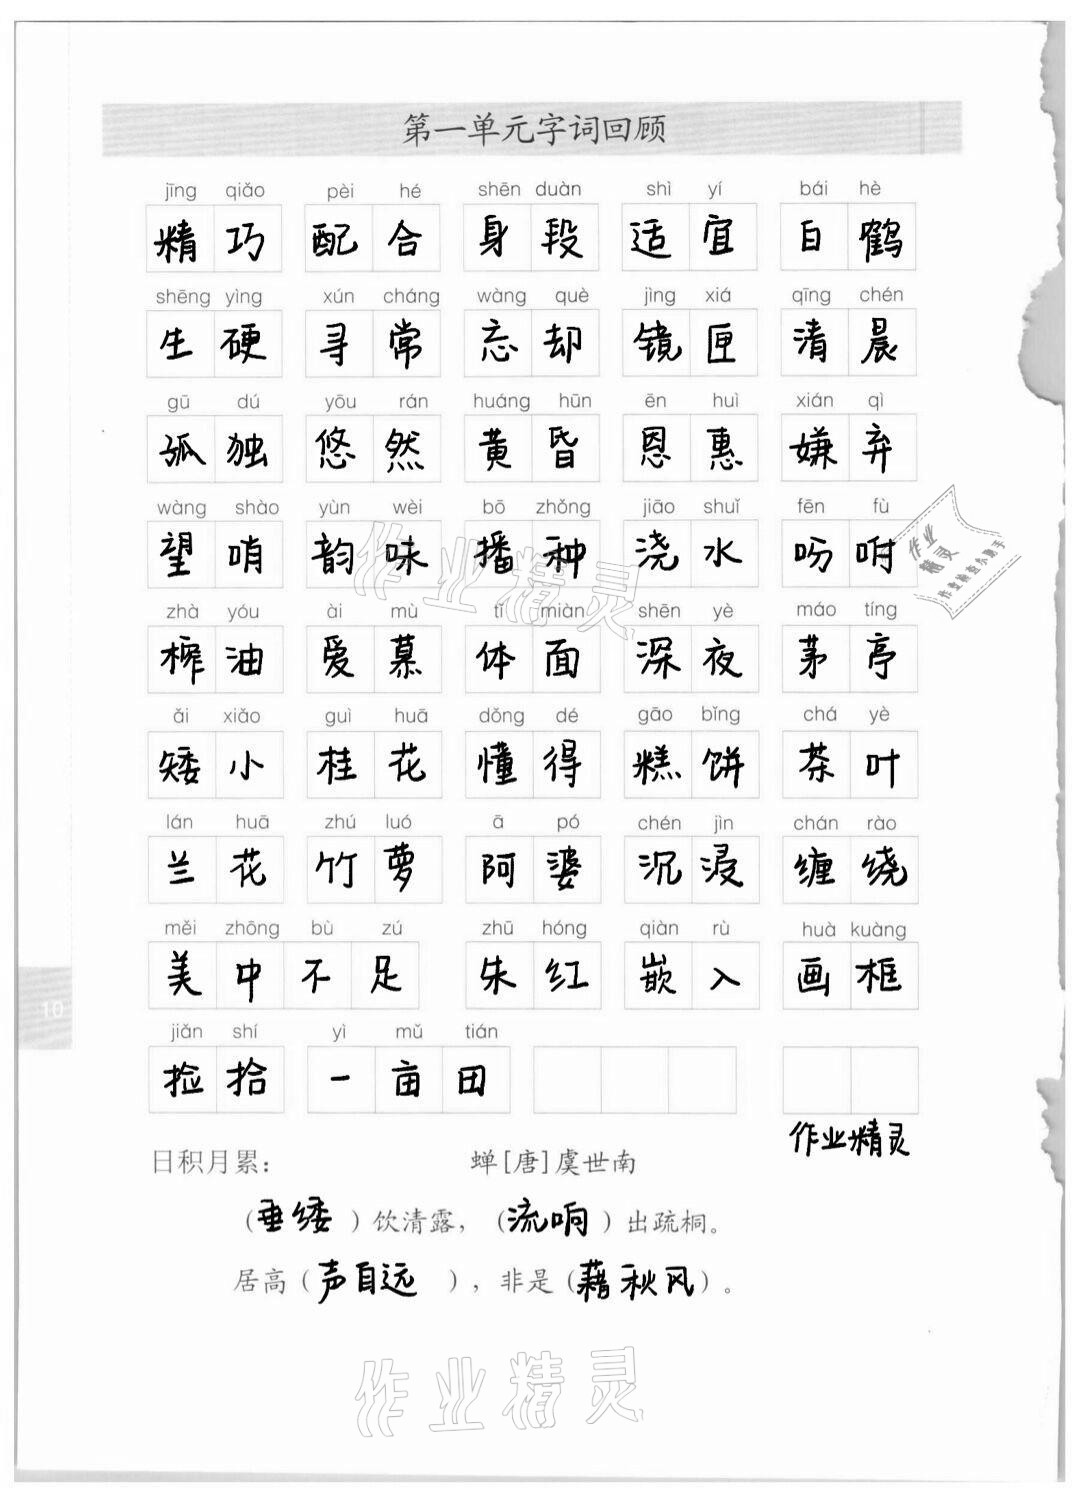 第一单元字词回顾
jīng qiǎo pèi hé shēn duàn shì yí bái hè
精巧 配合 身段 适宜 白鹤
shēng yìng xún cháng wàng què jìng xiá qīng chén
生硬 寻常 忘却 镜匣 清晨
gū dú yōu rán huáng hūn ēn huì xián qì
孤独 悠然 黄昏 恩惠 嫌弃
wàng shào yùn wèi bō zhǒng jiāo shuǐ fēn fù
望哨 韵味 播种 浇水 吩咐
zhà yóu ài mù tǐ miàn shēn yè máo tíng
榨油 爱慕 体面 深夜 茅亭
ǎi xiǎo guì huā dǒng dé gāo bǐng chá yè
矮小 桂花 懂得 糕饼 茶叶
lán huā zhú luó ā pó chén jìn chán rào
兰花 竹萝 阿婆 沉浸 缠绕
měi zhōng bù zú zhū hóng qiàn rù huà kuàng
美中不足 朱红 嵌入 画框
jiǎn shí yì mǔ tián
捡拾 一亩田
作业精灵
日积月累: 蝉[唐]虞世南
(垂緌)饮清露,(流响)出疏桐。
居高(声自远),非是(藉秋风)。
10
作业精灵
作业精灵
作业检查小助手
作业精灵